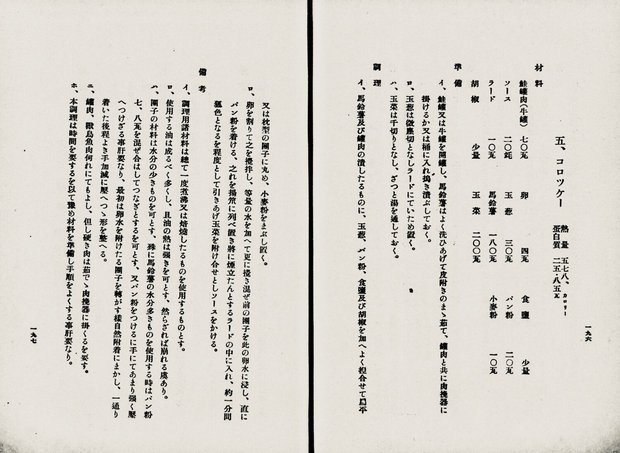 五、コロツケー 熱量 五七八、カロリー
蛋白質 二五・八五瓦
材料
鮭罐肉(牛罐) 七〇瓦 卵 四瓦 食鹽 少量
ソース 二〇瓱 玉葱 三〇瓦 パン粉 二〇瓦
ラード 一〇瓦 馬鈴薯 一八〇瓦 小麥粉 一〇瓦
胡椒 少量 玉菜 二〇〇瓦
準備
イ、鮭罐又は牛罐を開罐し、馬鈴薯はよく洗ひあげて皮附きのまゝ茹で、罐肉と共に肉挽器に
掛けるか又は桶に入れ搗き潰ぶしておく。
ロ、玉葱は微塵切となしラードにていため置く。
ハ、玉菜は千切りとなし、ざつと湯を通しておく。
調理
イ、馬鈴薯及び罐肉の潰したるものに、玉葱、パン粉、食鹽及び胡椒を加へよく捏合せて扁平
一九六
又は枕型の團子に丸め、小麥粉をまぶし置く。
ロ、卵を割りて之を攪拌し、等量の水を加へて更に攪き混ぜ前の團子を此の卵水に浸し、直に
パン粉を着ける、之れを揚笊に列べ置き將に煙立たんとするラードの中に入れ、約一分間
狐色となるを程度として引きあげ玉菜を附け合せとしソースをかける。
備考
イ、調理用諸材料は總て一度煮沸又は焙燒したるものを使用するものとす。
ロ、使用する油は成るべく多くし、且油の熱は強きを可とす、然らざれば崩れる處あり。
ハ、團子の材料は水分の少きものを可とす、殊に馬鈴薯の水分多きものを使用する時はパン粉
七、八瓦を混ぜ合はしてつなぎとするを可とす、又パン粉をつけるに手にてあまり強く壓
へつけざる事肝要なり、最初は卵水を附けたる團子を轉がす樣自然附着にまかし、一通り
着いた後程よき手加減に壓へつゝ形を整へる。
ニ、罐肉、獸鳥魚肉何れにてもよし、但し硬き肉は茹でゝ肉挽器に掛くるを要す。
ホ、本調理は時間を要するを以て豫め材料を準備し手順をよくする事肝要なり。
一九七